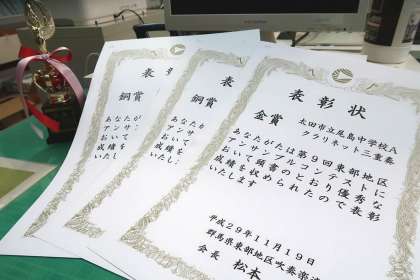 表彰状
銅賞
あなたが
アンサン
おいて
成績を
いたし
表彰
銅賞
あなたが
アンサン
おいて
成績を
いたし
表彰状
金賞
太田市立尾島中学校A
クラリネット三重奏
あなたがたは第9回東部地区
アンサンブルコンテストに
おいて頭書のとおり優秀な
成績を収められたので表彰
いたします
平成29年11月19日
群馬県東部地区吹奏楽
会長 松本